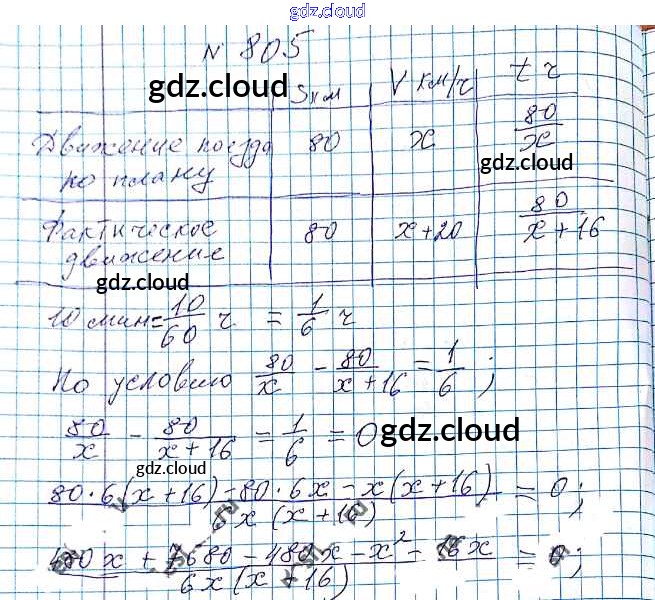 gdz.cloud
N 805
gdz.cloud
S км V км/ч t ч
Движение поезда по плану 80 x 80/x
gdz.cloud
Фактическое движение 80 x+20 80/(x+16)
gdz.cloud
10 мин = 10/60 ч = 1/6 ч
По условию 80/x - 80/(x+16) = 1/6 ;
80/x - 80/(x+16) = 1/6 = 0
gdz.cloud
gdz.cloud
(80·6(x+16) - 80·6x - x(x+16))/(6x(x+16)) = 0;
(480x + 7680 - 480x - x² - 16x)/(6x(x+16)) = 0;